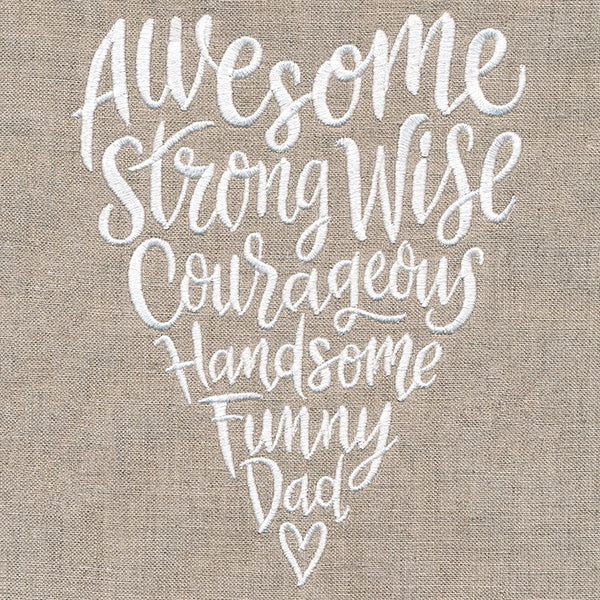 Awesome
Strong Wise
Courageous
Handsome
Funny
Dad